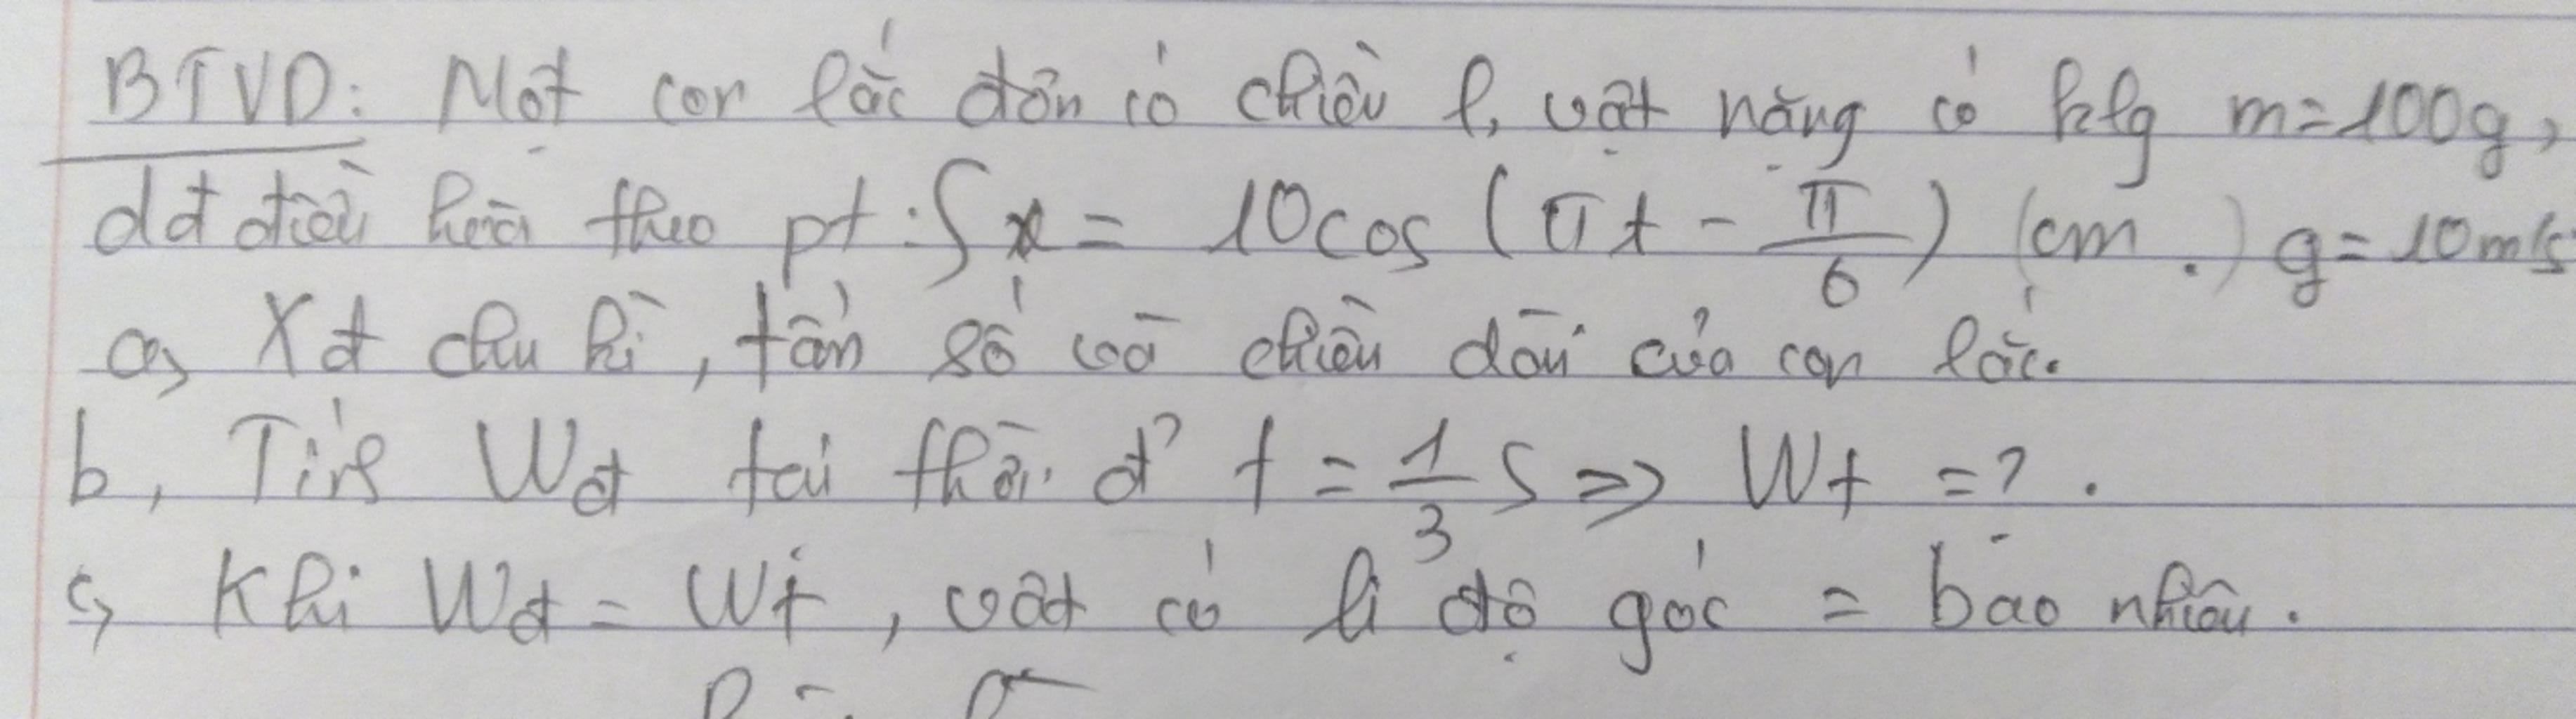 BTVD: Một con lắc đơn có chiều l, vật nặng có klg m=100g,
dđ điều hoà theo pt : S x = 10cos (πt - π/6) (cm.) g=10m/s
a, Xđ chu kì, tần số và chiều dài của con lắc.
b, Tính Wđ tại thời đ' t = 1/3 s => Wt = ?.
c, Khi Wđ = Wt, vật có li độ góc = bao nhiêu.